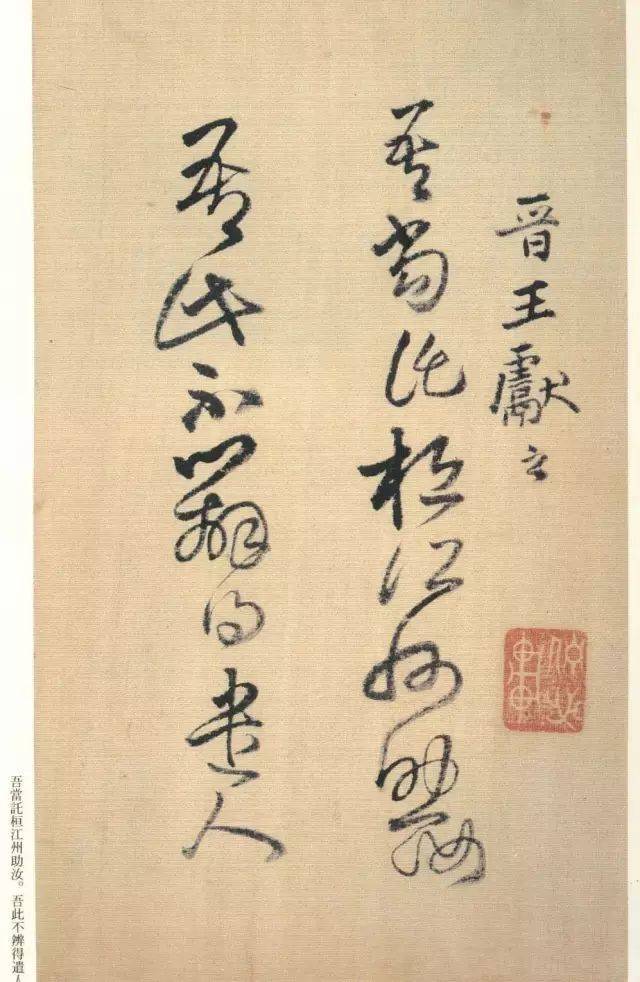 晋王獻之
吾當託桓江州助汝
吾此不辨得遣人
吾當託桓江州助汝。吾此不辨得遣人